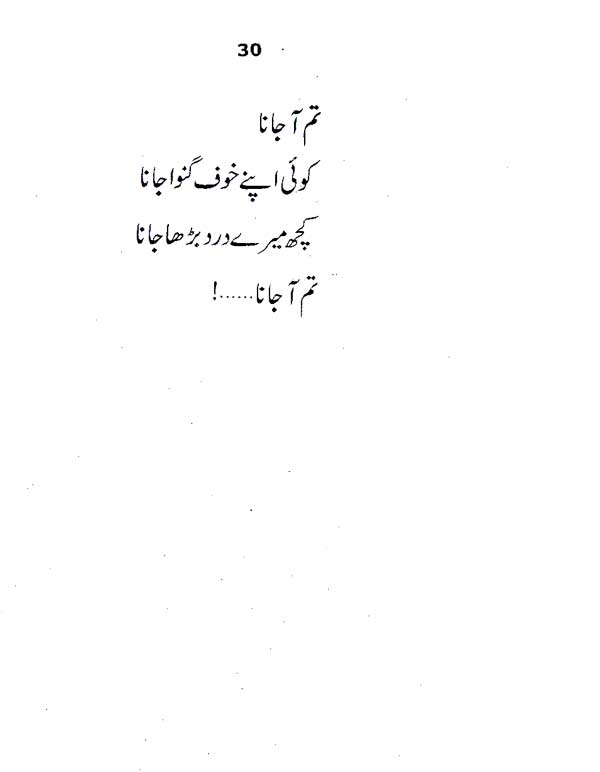 30
تم آ جانا
کوئی اپنے خوف گنوا جانا
کچھ میرے درد بڑھا جانا
تم آ جانا......!